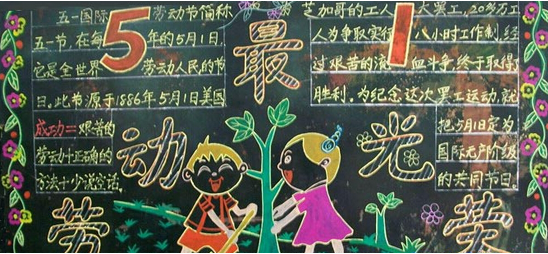 五一国际劳动节简称
五一节,在每年的5月1日。
它是全世界劳动人民的节
日。此节源于1886年5月1日美国
芝加哥的工人大罢工,20多万工
人为争取实行八小时工作制,经
过艰苦的流血斗争终于取得
胜利。为纪念这次罢工运动就
把5月1日定为
国际无产阶级
的共同节日。
5
1
劳动最光荣
成功=艰苦的
劳动+正确的
方法+少说空话。